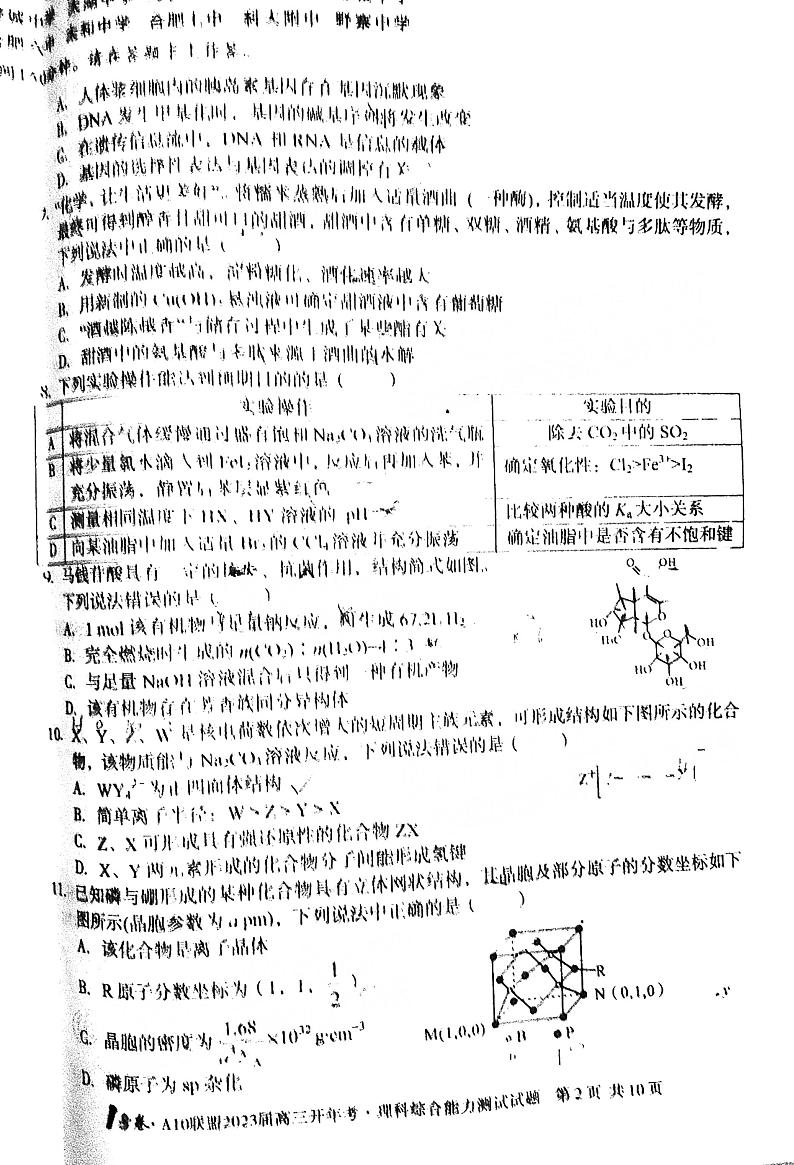 太和中学 合肥七中 科大附中 野寨中学
请在答题卡上作答。
A. 人体浆细胞内的胰岛素基因存在基因沉默现象
B. DNA 发生甲基化时，基因的碱基序列将发生改变
C. 在遗传信息流中，DNA 和 RNA 是信息的载体
D. 基因的选择性表达与基因表达的调控有关
7. “化学，让生活更美好”。将糯米蒸熟后加入适量酒曲（一种酶），控制适当温度使其发酵，
最终可得到醇香且甜可口的甜酒，甜酒中含有单糖、双糖、酒精、氨基酸与多肽等物质，
下列说法中正确的是（ ）
A. 发酵时温度越高，淀粉糖化、酒化速率越大
B. 用新制的 Cu(OH)₂ 悬浊液可确定甜酒液中含有葡萄糖
C. “酒越陈越香”与储存过程中生成了某些酯有关
D. 甜酒中的氨基酸与多肽来源于酒曲的水解
8. 下列实验操作能达到预期目的的是（ ）
实验操作 实验目的
A 将混合气体缓慢通过盛有饱和 Na₂CO₃ 溶液的洗气瓶 除去 CO₂ 中的 SO₂
B 将少量氯水滴入到 FeI₂ 溶液中，反应后再加入苯，并 确定氧化性：Cl₂>Fe³⁺>I₂
充分振荡，静置后苯层显紫红色
C 测量相同温度下 HX、HY 溶液的 pH 比较两种酸的 Kₐ 大小关系
D 向某油脂中加入适量 Br₂ 的 CCl₄ 溶液并充分振荡 确定油脂中是否含有不饱和键
9. 马钱苷酸具有一定的抗炎、抗菌作用，结构简式如图。
下列说法错误的是（ ）
A. 1 mol 该有机物与足量钠反应，可生成 67.2L H₂
B. 完全燃烧时生成的 n(CO₂)∶n(H₂O)=4∶3
C. 与足量 NaOH 溶液混合后只得到一种有机产物
D. 该有机物存在芳香族同分异构体
O OH
HO
H₃C
O
O
OH
HO OH
OH
10. X、Y、Z、W 是核电荷数依次增大的短周期主族元素，可形成结构如下图所示的化合
物，该物质能与 Na₂CO₃ 溶液反应，下列说法错误的是（ ）
A. WY₄²⁻ 为正四面体结构
B. 简单离子半径：W＞Z＞Y＞X
C. Z、X 可形成具有强还原性的化合物 ZX
D. X、Y 两元素形成的化合物分子间能形成氢键
Z⁺
11. 已知磷与硼形成的某种化合物具有立体网状结构，其晶胞及部分原子的分数坐标如下
图所示(晶胞参数为 a pm)，下列说法中正确的是（ ）
A. 该化合物是离子晶体
B. R 原子分数坐标为（1，1，1/2）
C. 晶胞的密度为 1.68 ×10³² g·cm⁻³
D. 磷原子为 sp 杂化
R
N (0,1,0)
M(1,0,0)
B P
A10联盟2023届高三开年考·理科综合能力测试试题 第2页 共10页